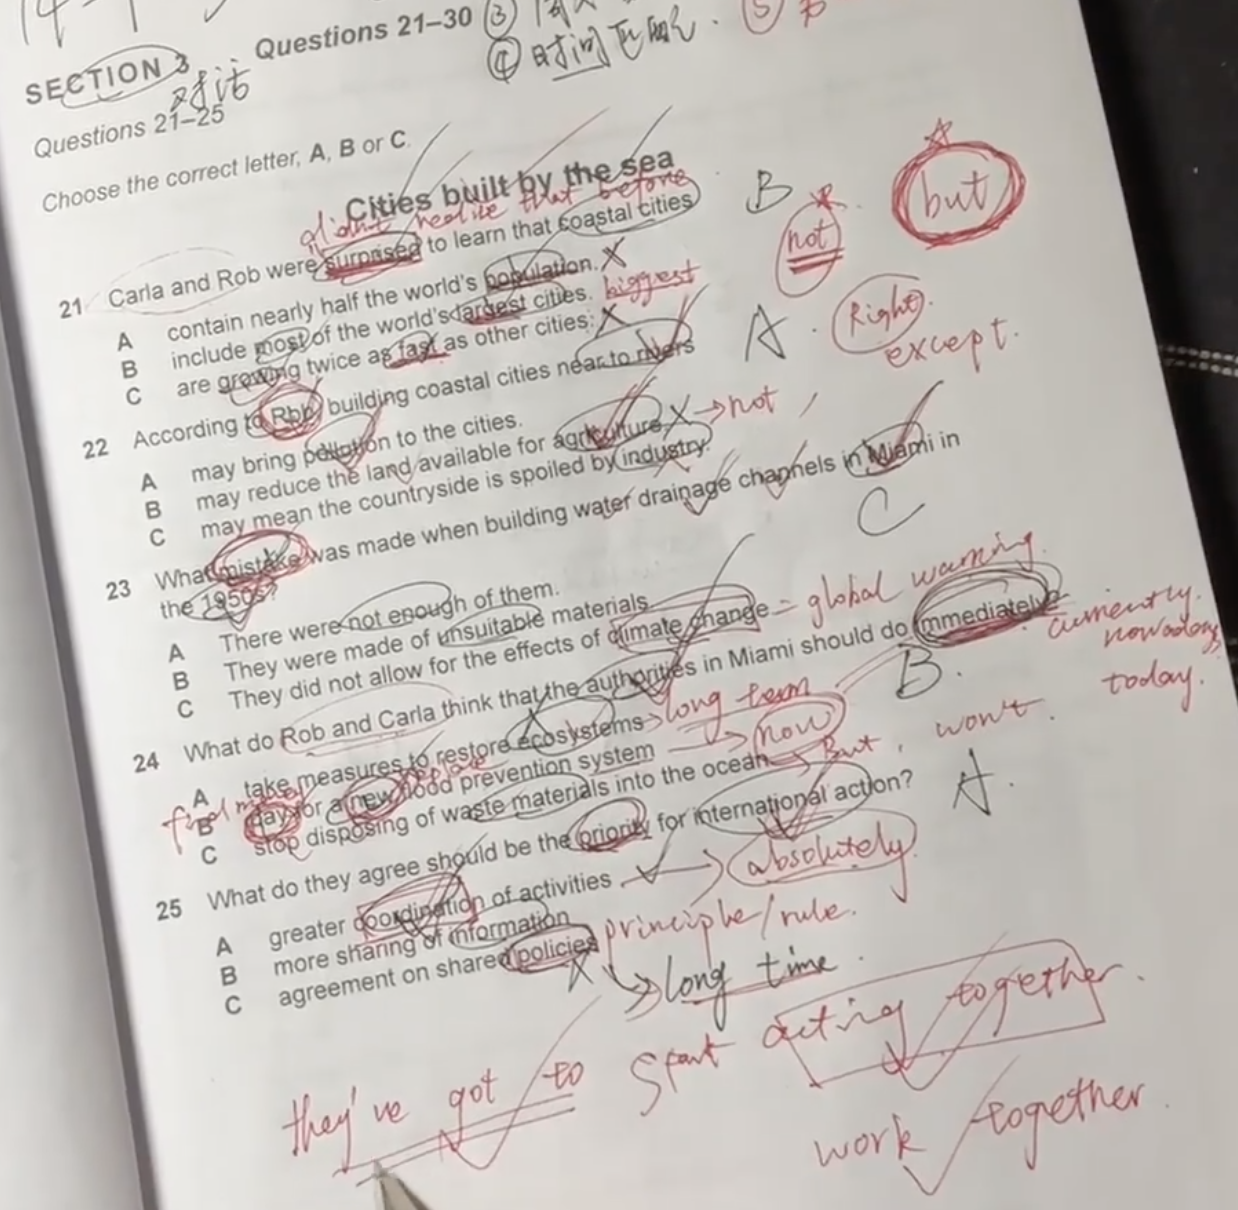 Questions 21–30 ③
④ 时间 ⑤
SECTION 3 对话
Questions 21–25
Choose the correct letter, A, B or C.
Cities built by the sea
didn't realise that before
21 Carla and Rob were surprised to learn that coastal cities B not but
A contain nearly half the world's population.
B include most of the world's largest cities. biggest
C are growing twice as fast as other cities.
22 According to Rob, building coastal cities near to rivers A Right. except.
A may bring pollution to the cities.
B may reduce the land available for agriculture. → not
C may mean the countryside is spoiled by industry.
23 What mistake was made when building water drainage channels in Miami in the 1950s? C
A There were not enough of them.
B They were made of unsuitable materials.
C They did not allow for the effects of climate change = global warming.
24 What do Rob and Carla think that the authorities in Miami should do immediately? B. currently. nowadays today.
A take measures to restore ecosystems → long term
B pay for a new flood prevention system → now
C stop disposing of waste materials into the ocean → But, won't.
25 What do they agree should be the priority for international action? A.
A greater coordination of activities → absolutely
B more sharing of information
C agreement on shared policies principle/rule.
→ long time.
they've got to start acting together.
work together.